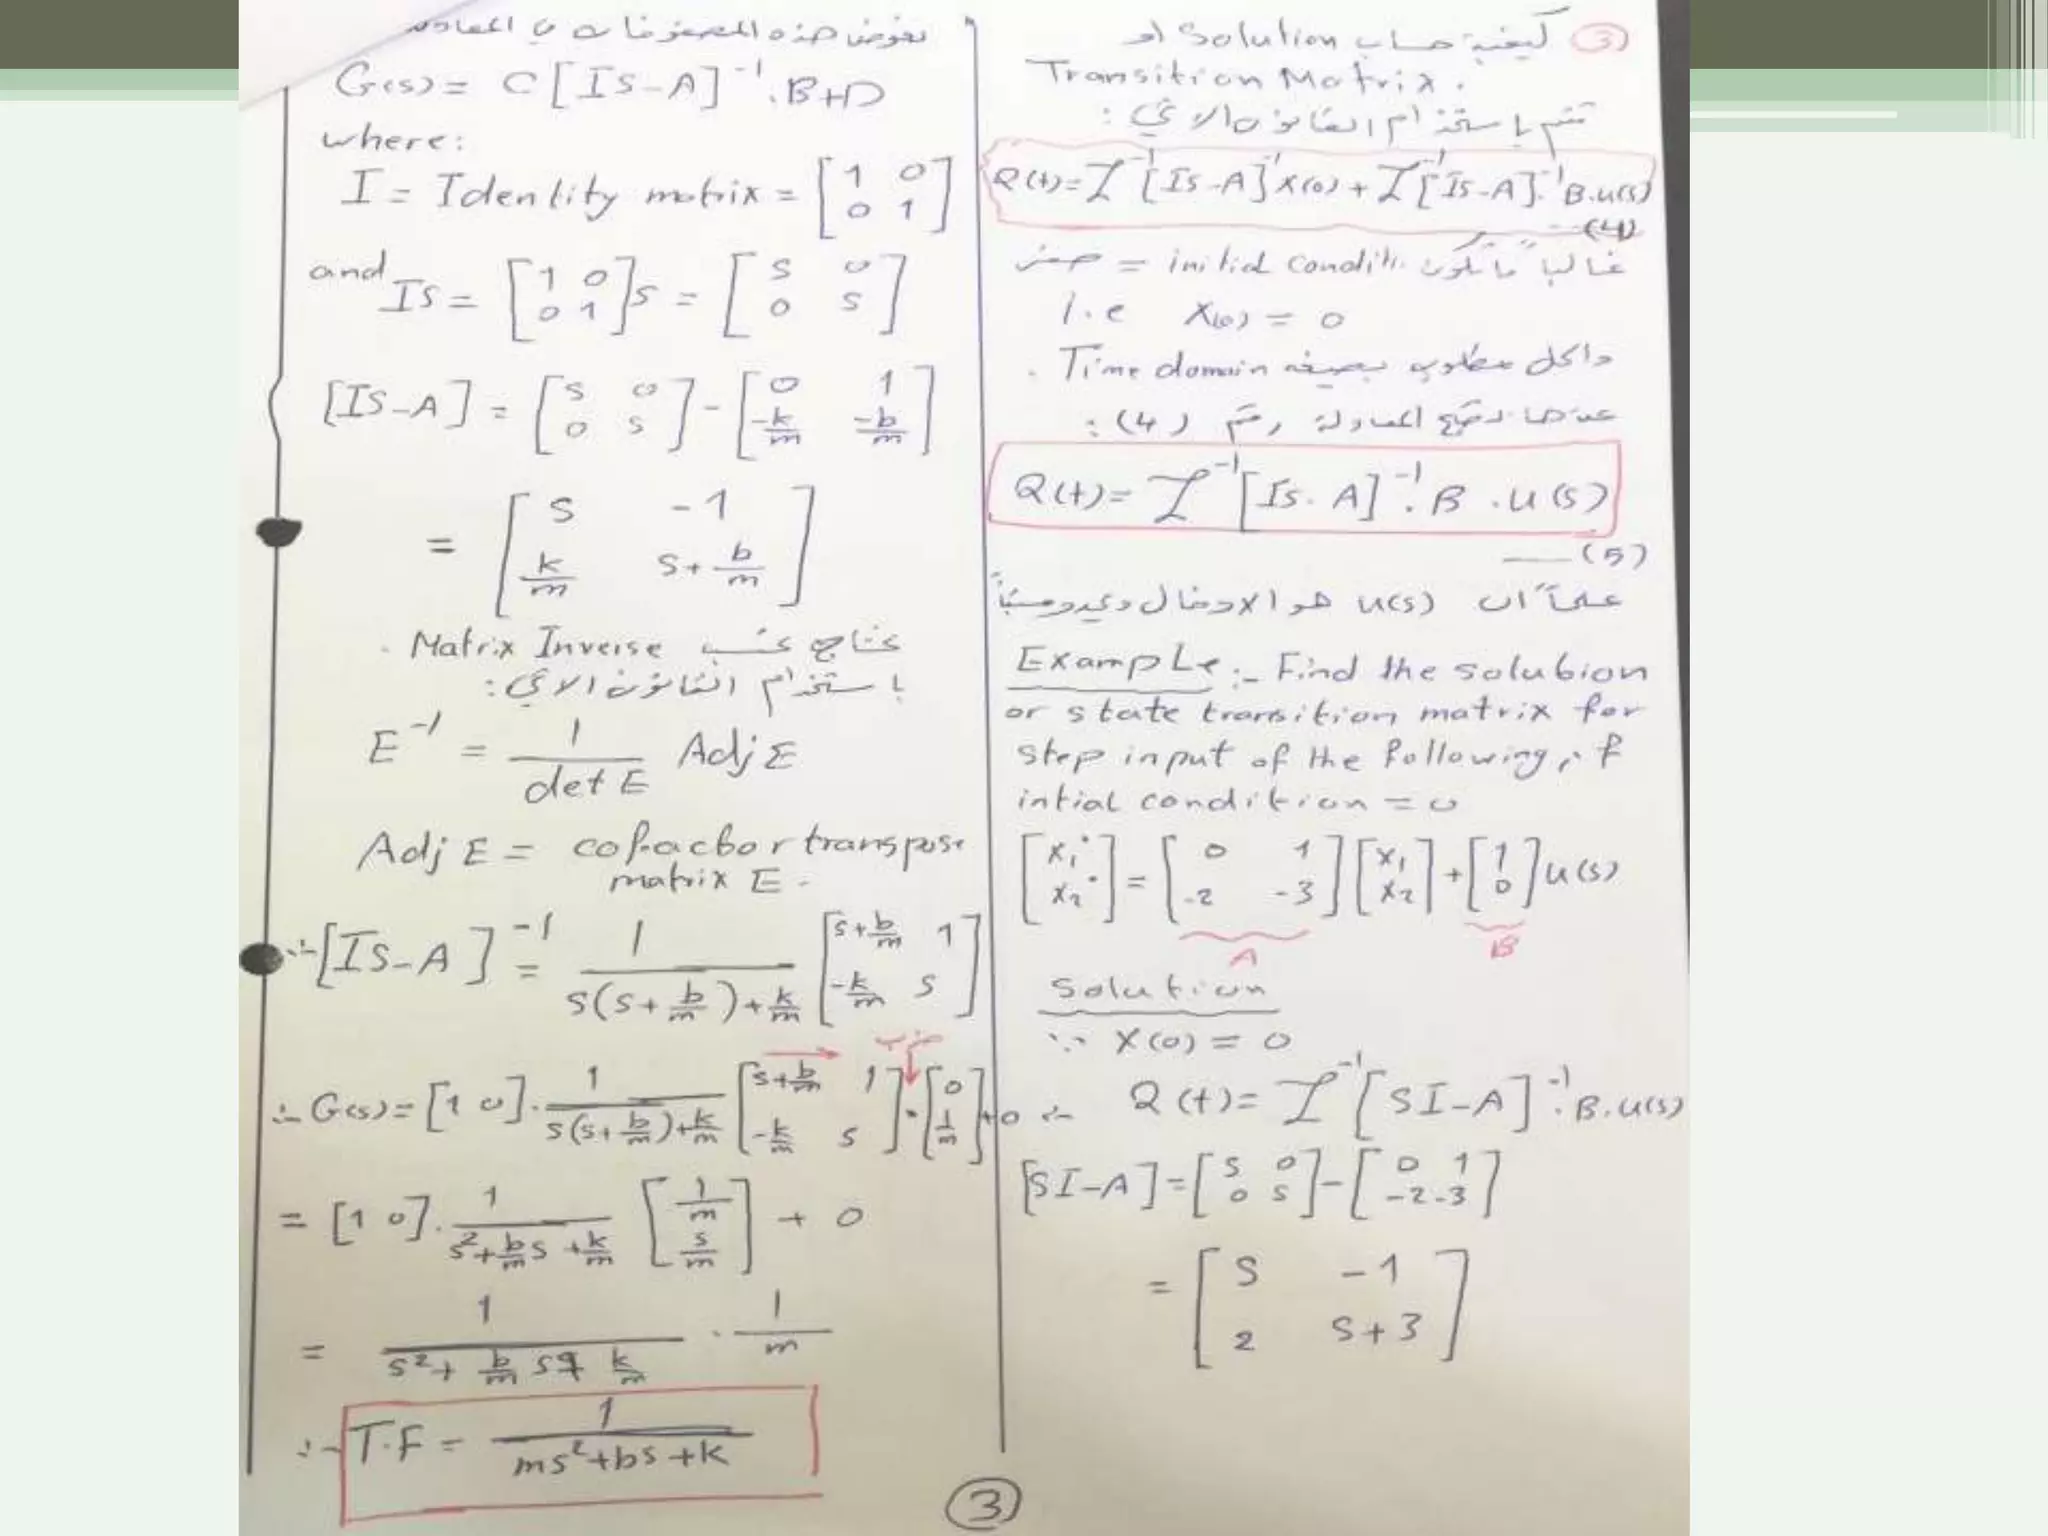 نعوض هذه المصفوفات في المعادلة
G(s) = C [IS-A]⁻¹ . B+D
where:
I = Idenlity matrix = [1 0; 0 1]
and IS = [1 0; 0 1]s = [s 0; 0 s]
[IS-A] = [s 0; 0 s] - [0 1; -k/m -b/m]
= [s -1; k/m s+b/m]
Matrix Inverse
باستخدام القانون الاتي :
E⁻¹ = 1/det E Adj E
Adj E = cofactor transpose
matrix E .
∴ [IS-A]⁻¹ = 1/(s(s+b/m)+k/m) [s+b/m 1; -k/m s]
ضرب
∴ G(s) = [1 0] . 1/(s(s+b/m)+k/m) [s+b/m 1; -k/m s] . [0; 1/m] + 0
= [1 0] . 1/(s²+b/m s+k/m) [1/m; s/m] + 0
= 1/(s²+b/m s+k/m) . 1/m
∴ T.F = 1/(ms²+bs+k)
(3) كيفية حساب Solution او
Transition Matrix .
تتم باستخدام القانون الاتي :
Q(t) = ℒ⁻¹[Is-A]⁻¹X(0) + ℒ⁻¹[Is-A]⁻¹. B.u(s)
(4)
غالباً ماتكون initial conditi = صفر
i.e X(0) = 0
والحل مطلوب بصيغه Time domain .
عندها تصبح المعادلة رقم (4) :
Q(t) = ℒ⁻¹ [Is-A]⁻¹ . B . u(s)
— (5)
علماً ان u(s) هو الادخال
Example :- Find the solution
or state transition matrix for
step input of the following, if
intial condition = 0
[x₁˙; x₂˙] = [0 1; -2 -3] [x₁; x₂] + [1; 0] u(s)
A B
Solution
∵ X(0) = 0
∴ Q(t) = ℒ⁻¹ [SI-A]⁻¹ . B.u(s)
[SI-A] = [s 0; 0 s] - [0 1; -2 -3]
= [S -1; 2 S+3]
3